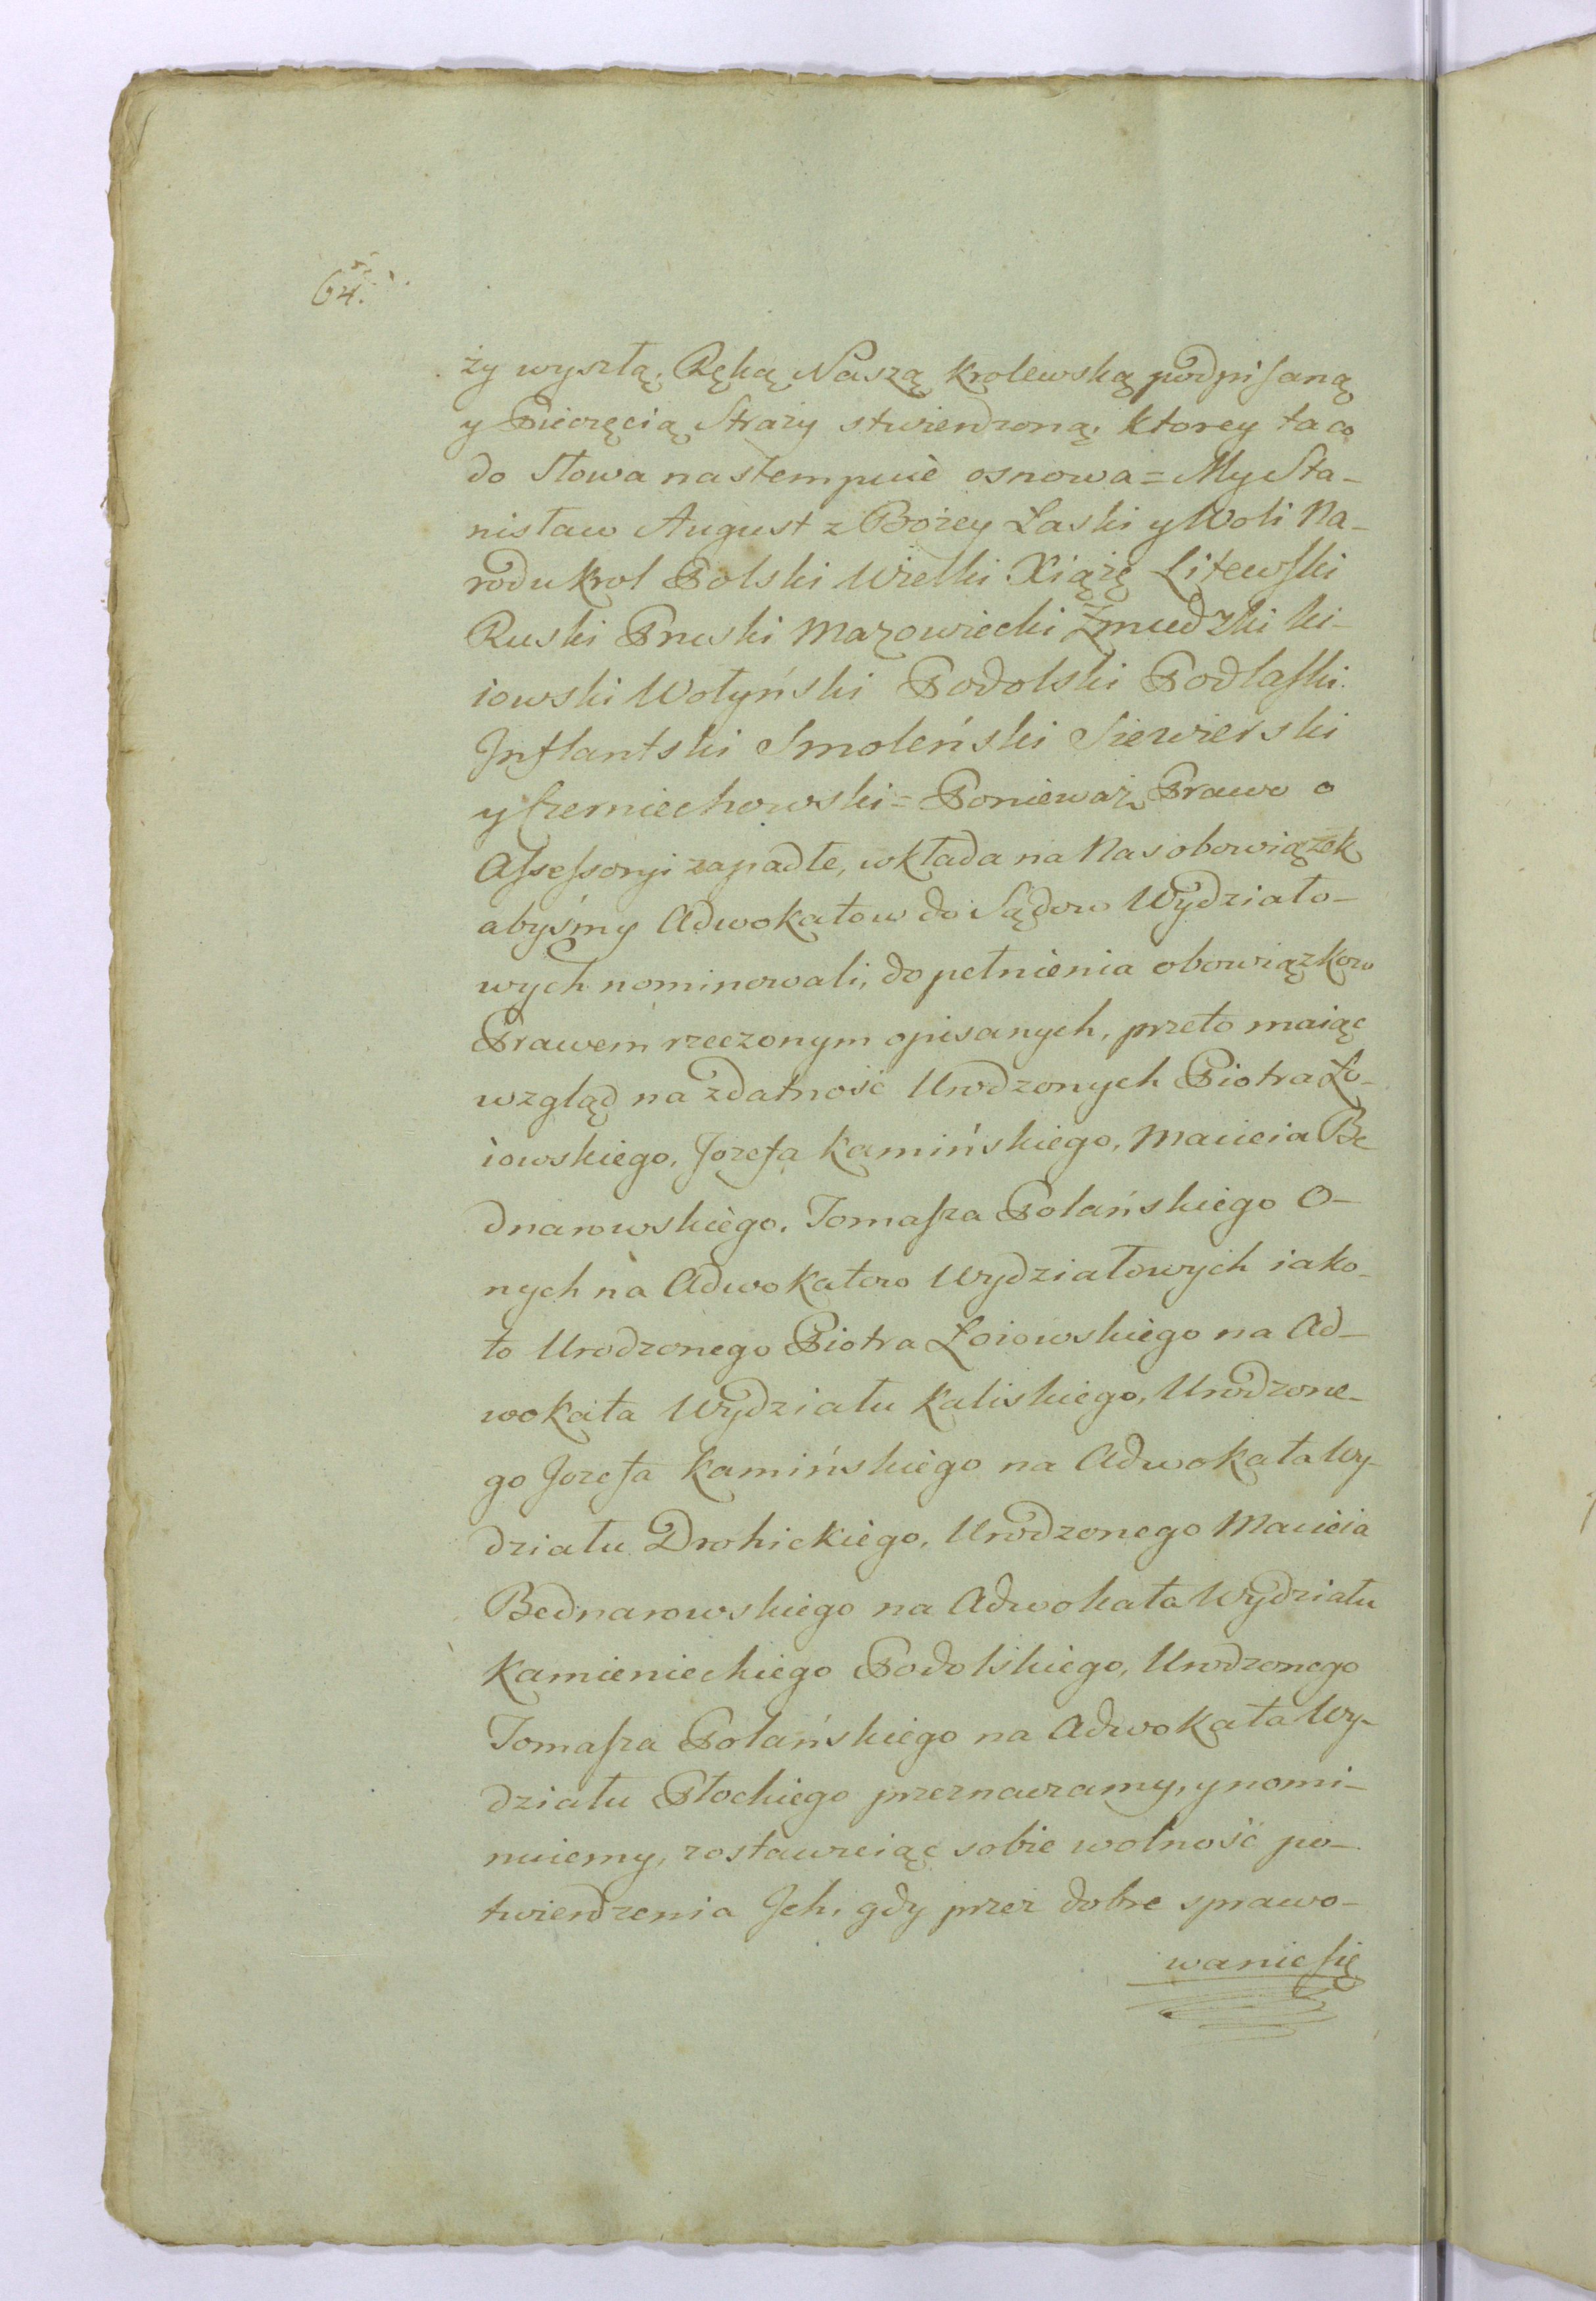 64.
ży wyszłą, Ręką Naszą krolewską podpisaną
y Pieczęcią Straży stwierdzoną, ktorey ta co
do Słowa nastempuie osnowa = My Sta-
nisław August z Bożey Łaski y Woli Na-
rodu krol Polski Wielki Xiąże Litewski
Ruski Pruski Mazowiecki Żmudzki ki-
iowski Wołyński Podolski Podlaski
Inflantski Smoleński Siewierski
y Czerniechowski = Ponieważ Prawo o
Assessoryi zapadłe, wkłada na Nas obowiązek
abyśmy Adwokatow do Sądow Wydziało-
wych nominowali, do pełnienia obowiązkow
Prawem rzeczonym opisanych, przeto maiąc
wzgląd na zdatność Urodzonych Piotra Ło-
iowskiego, Jozefa kamińskiego, Macieia Be
dnarowskiego, Tomasza Polańskiego O-
nych na Adwokatow Wydziałowych iako-
to Urodzonego Piotra Łoiowskiego na Ad-
wokata Wydziału kaliskiego, Urodzone-
go Jozefa kamińskiego na Adwokata Wy-
działu Drohickiego, Urodzonego Macieia
Bednarowskiego na Adwokata Wydziału
kamienieckiego Podolskiego, Urodzonego
Tomasza Polańskiego na Adwokata Wy-
działu Płockiego przeznaczamy, y nomi-
nuiemy, zostawuiąc sobie wolność po-
twierdzenia Ich, gdy przez dobre sprawo-
wanie się